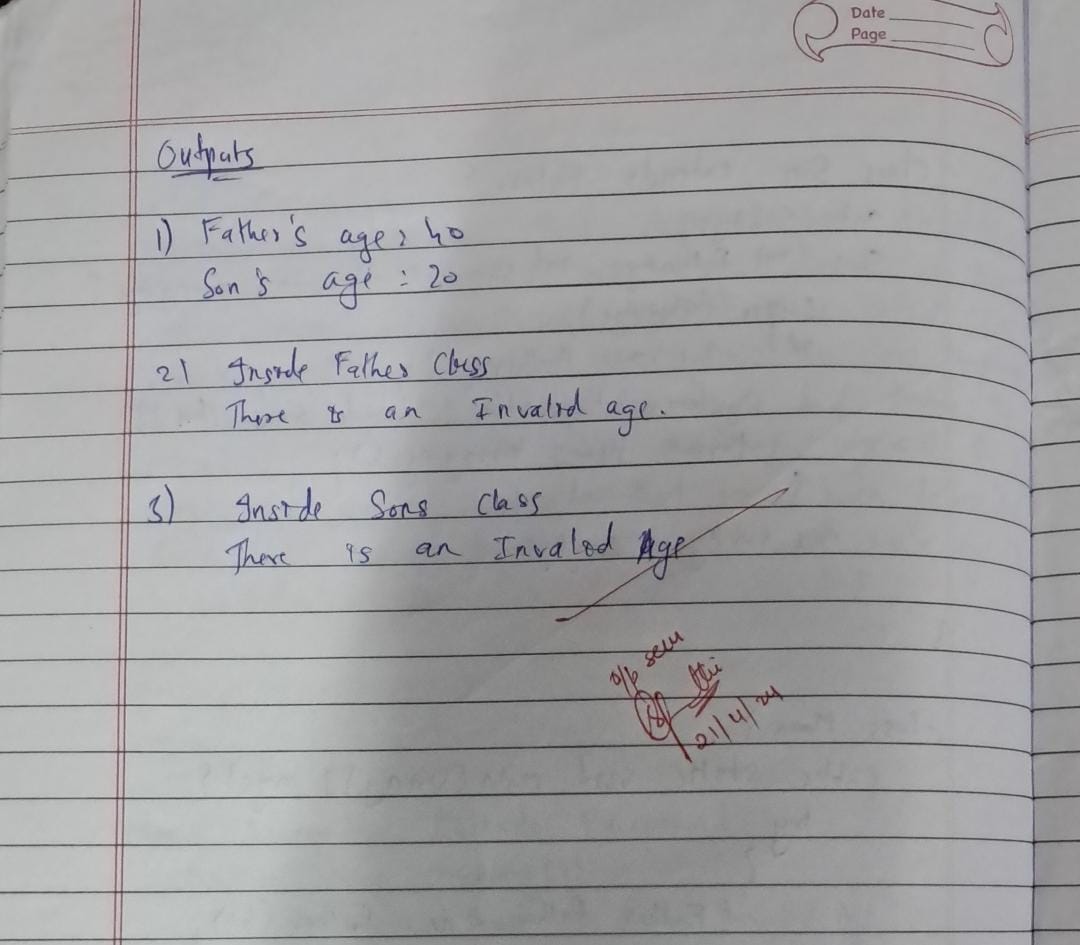 Date
Page
Outputs
1) Father's age : 40
Son's age : 20
2) Inside Father Class
There is an Invalid age.
3) Inside Sons Class
There is an Invalid Age
o/p seen
21/4/24